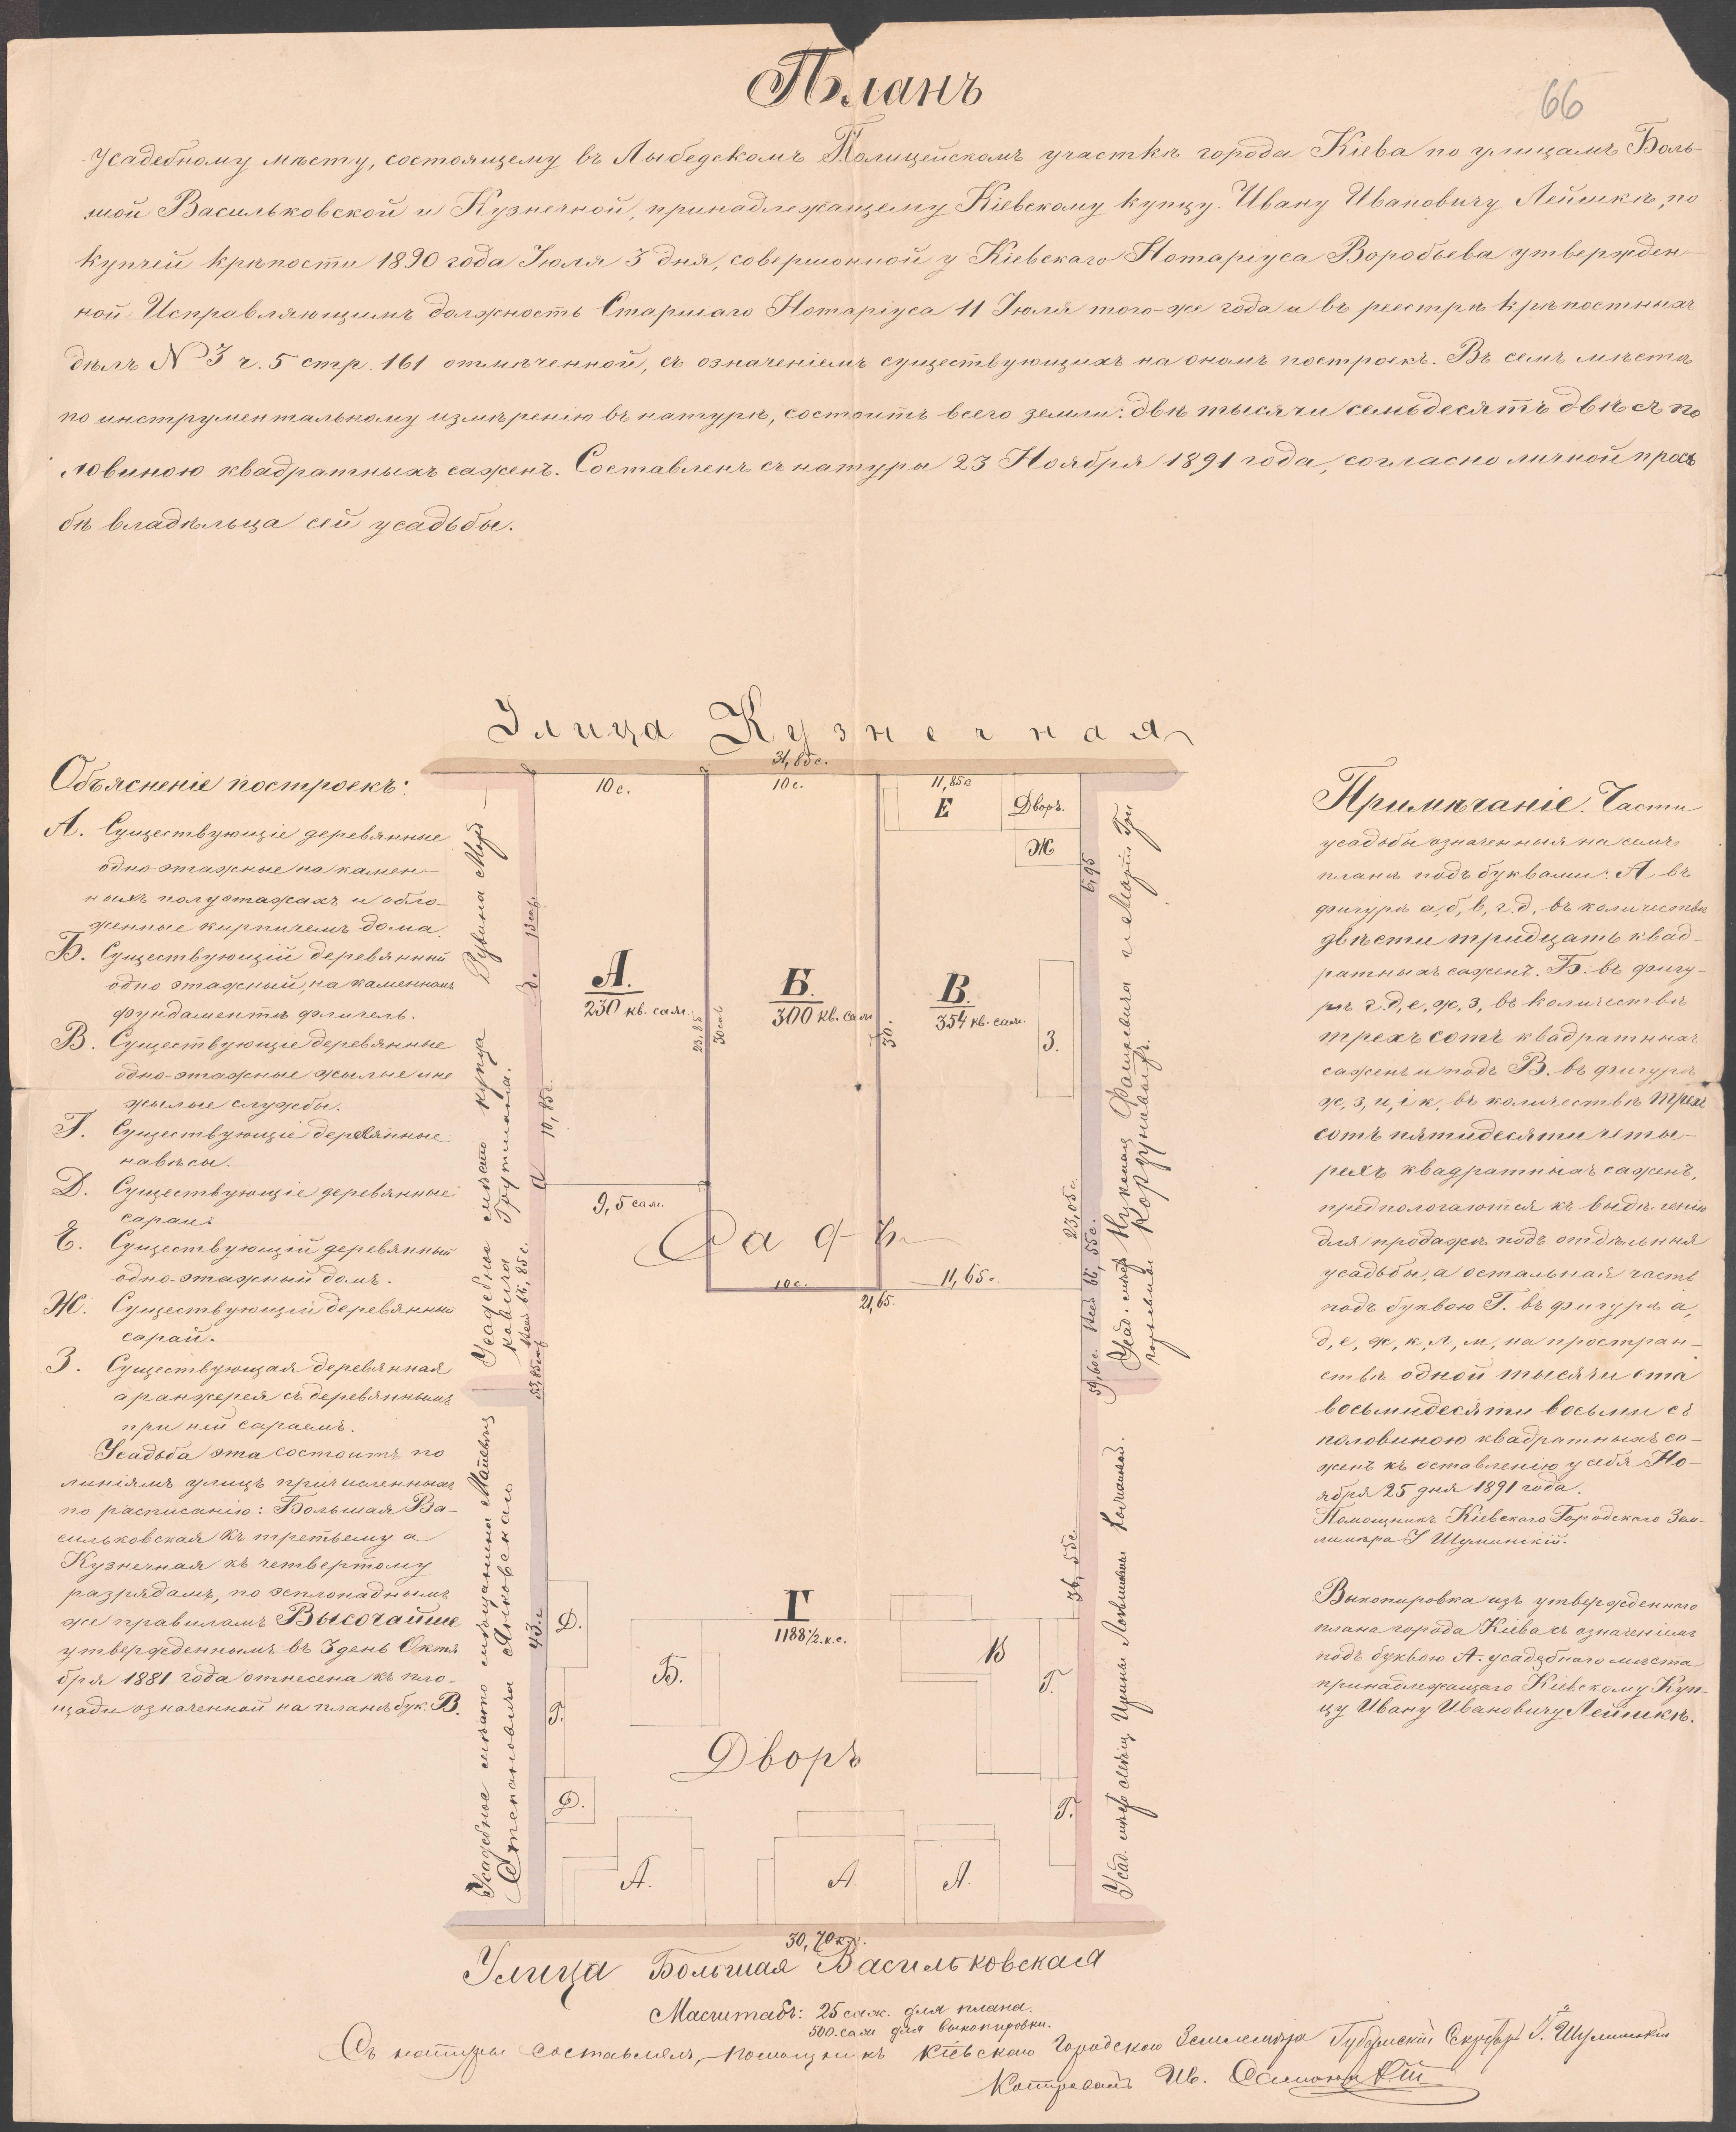 Планъ
66
Усадебному мѣсту, состоящему въ Лыбедскомъ Полицейскомъ участкѣ города Кіева по улицамъ Боль-
шой Васильковской и Кузнечной, принадлежащему Кіевскому купцу Ивану Ивановичу Лепшкѣ, по
купчей крѣпости 1890 года Іюля 3 дня, совершонной у Кіевскаго Нотаріуса Воробьева утвержден-
ной Исправляющимъ должность Старшаго Нотаріуса 11 Іюля того-же года и въ реестрѣ крѣпостныхъ
дѣлъ № 3 ч. 5 стр. 161 отмѣченной, съ означеніемъ существующихъ на ономъ построекъ. Въ семъ мѣстѣ
по инструментальному измѣренію въ натурѣ, состоитъ всего земли: двѣ тысячи семьдесятъ двѣ съ по
ловиною квадратныхъ сажень. Составленъ съ натуры 23 Ноября 1891 года, согласно личной прось
бѣ владѣльца сей усадьбы.
Улица Кузнечная
31,85 с.
Объясненіе построекъ:
А. Существующіе деревянные
одно-этажные на камен-
ныхъ полуэтажахъ и обло-
женные кирпичемъ дома.
Б. Существующій деревянный
одно этажный, на каменномъ
фундаментѣ флигель.
В. Существующіе деревянные
одно-этажные жилые и не
жилые службы.
Г. Существующіе деревянные
навѣсы.
Д. Существующіе деревянные
сараи.
Е. Существующій деревянный
одно-этажный домъ.
Ж. Существующій деревянный
сарай.
З. Существующая деревянная
аранжерея съ деревяннымъ
при ней сараемъ.
Усадьба эта состоитъ по
линіямъ улицъ причисленныхъ
по расписанію: Большая Ва-
сильковская къ третьему а
Кузнечная къ четвертому
разрядамъ, по эспланаднымъ
же правиламъ Высочайше
утвержденнымъ въ 3 день Октя
бря 1881 года отнесена къ пло-
щади означенной на планѣ бук. В.
10 с.
10 с.
11,85 с.
Е
Дворъ.
Ж
6,95
13 саж.
А.
230 кв. саж.
Б.
300 кв. саж.
В.
354 кв. саж.
З.
23,85
30 саж.
30.
10,85 с.
9,5 саж.
Садъ
10 с.
11,65 с.
21,65.
23,05 с.
Всей 66,85 с.
53,85 саж.
Всей 66,55 с.
59,60 с.
36,55 с.
43 с.
Усадебное мѣсто купца Рувина Мор
ковича Грутмана.
Усадебное мѣсто мѣщанина
Степановича Янковскаго
Усад. мѣсто
Усад. мѣсто Ирины
Г
1188½ к. с.
Д.
Б.
В
Г.
Г.
Дворъ
Д.
Г.
А.
А.
А.
30,70 саж.
Улица Большая Васильковская
Масштабъ: 25 саж. для плана.
500 саж для выкопировки.
Съ натуры составлялъ, помощникъ Кіевскаго Городскаго Землемѣра Губернскій Секретарь І. Шуминскій
Копировалъ Ив.
Примѣчаніе. Части
усадьбы означенныя на семъ
планѣ подъ буквами: А въ
фигурѣ а, б, в, г, д, въ количествѣ
двѣсти тридцать квад-
ратныхъ сажень. Б. въ фигу-
рѣ г, д, е, ж, з, въ количествѣ
трехъ сотъ квадратныхъ
сажень и подъ В. въ фигурѣ
ж, з, и, і к, въ количествѣ трехъ
сотъ пятидесяти четы-
рехъ квадратныхъ сажень,
предпологаются къ выдѣленію
для продажи подъ отдѣльныя
усадьбы, а остальная часть
подъ буквою Г. въ фигурѣ а,
д, е, ж, к, л, м, на простран-
ствѣ одной тысячи ста
восьмидесяти восьми съ
половиною квадратныхъ са-
жень къ оставленію у себя Но-
ября 25 дня 1891 года.
Помощникъ Кіевскаго Городскаго Зем-
лемѣра І Шуминскій.
Выкопировка изъ утвержденнаго
плана города Кіева съ означеніемъ
подъ буквою А. усадебнаго мѣста
принадлежащаго Кіевскому Куп-
цу Ивану Ивановичу Лепшкѣ.